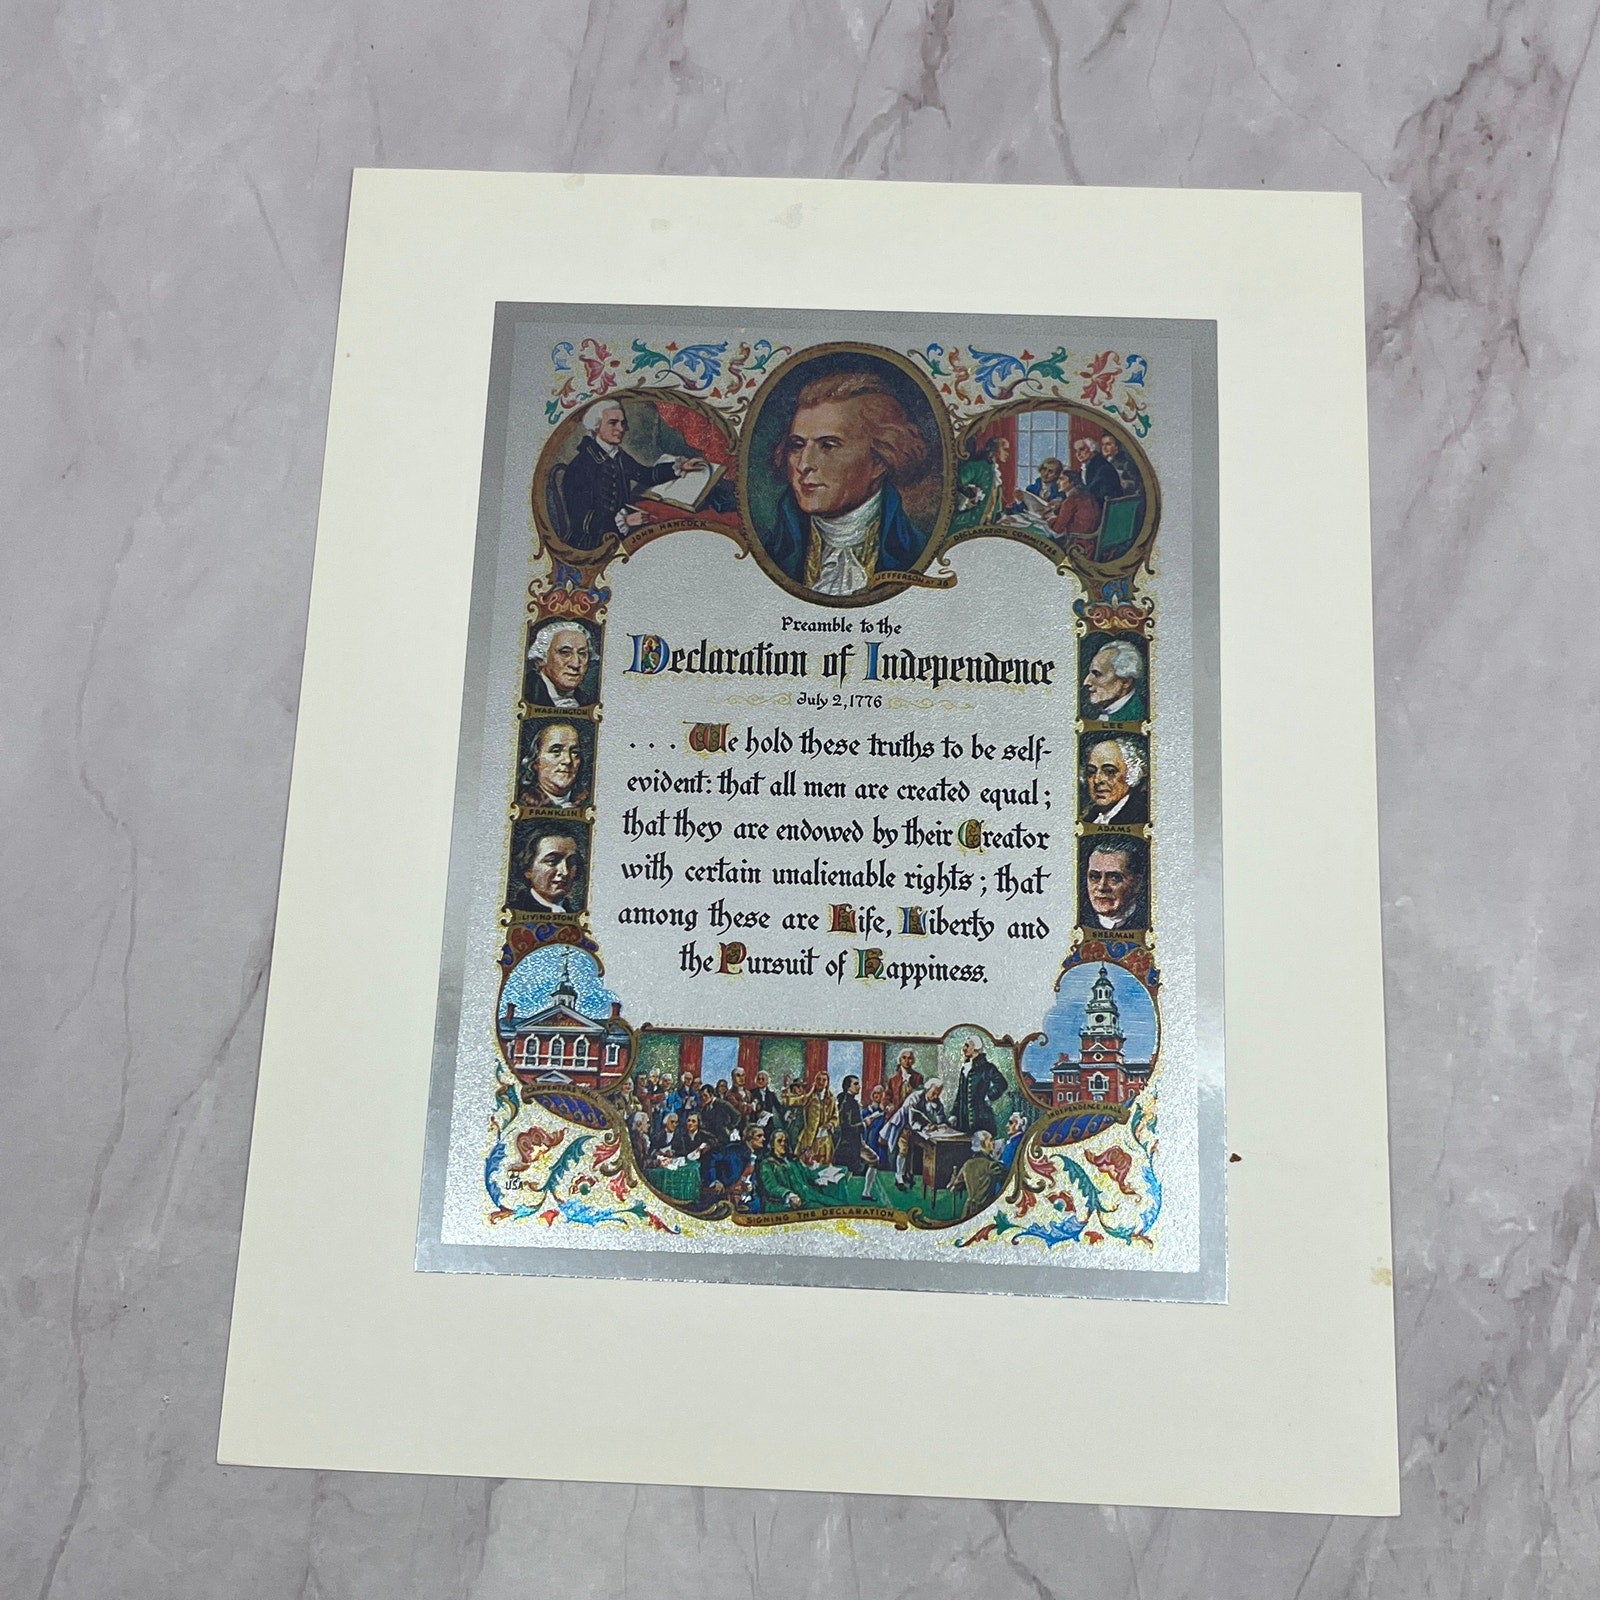 JOHN HANCOCK
JEFFERSON AT 36
DECLARATION COMMITTEE
Preamble to the
Declaration of Independence
July 2, 1776
... We hold these truths to be self-
evident: that all men are created equal;
that they are endowed by their Creator
with certain unalienable rights; that
among these are Life, Liberty and
the Pursuit of Happiness.
WASHINGTON
FRANKLIN
LIVINGSTON
LEE
ADAMS
SHERMAN
CARPENTERS HALL
INDEPENDENCE HALL
SIGNING THE DECLARATION
USA